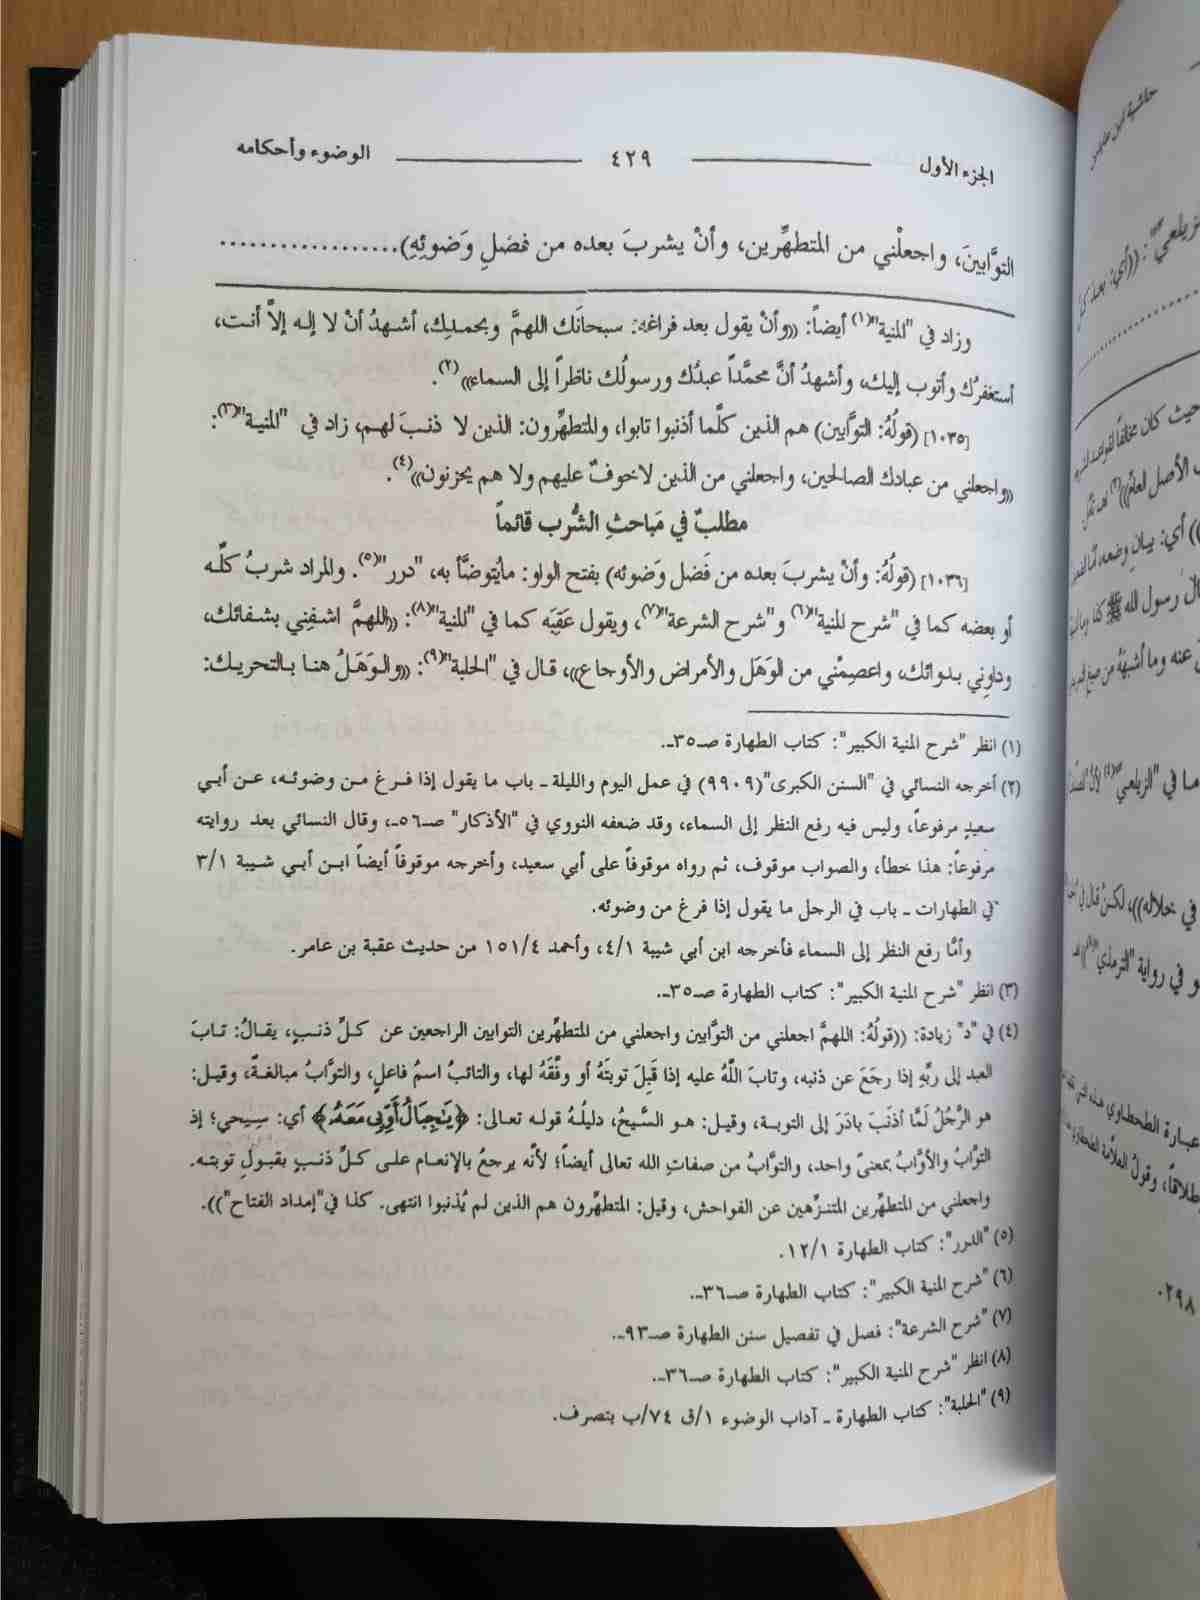 الجزء الأول ٤٢٩ الوضوء وأحكامه
التوَّابينَ، واجعلْني من المتطهِّرين، وأنْ يشربَ بعده من فضلِ وَضوئِهِ)..................
وزاد في "المنية"(١) أيضاً: ((وأنْ يقول بعد فراغه: سبحانَك اللهمَّ وبحمدِك، أشهدُ أنْ لا إله إلاَّ أنت،
أستغفرُك وأتوب إليك، وأشهدُ أنَّ محمَّداً عبدُك ورسولُك ناظراً إلى السماء))(٢).
[١٠٣٥] (قولُهُ: التوَّابين) هم الذين كلَّما أذنبوا تابوا، والمتطهِّرون: الذين لا ذنبَ لهم، زاد في "المنية"(٣):
((واجعلني من عبادك الصالحين، واجعلني من الذين لاخوفٌ عليهم ولا هم يحزنون))(٤).
مطلبٌ في مَباحثِ الشُّرب قائماً
[١٠٣٦] (قولُهُ: وأنْ يشربَ بعده من فَضل وَضوئه) بفتح الواو: مايُتوضَّأ به، "درر"(٥). والمراد شربُ كلّه
أو بعضه كما في "شرح المنية"(٦) و"شرح الشرعة"(٧)، ويقول عَقِبَه كما في "المنية"(٨): ((اللهمَّ اشفِني بشفائك،
وداوِني بدوائك، واعصِمْني من الوَهَل والأمراض والأوجاع))، قال في "الحلبة"(٩): ((والوَهَلُ هنا بالتحريك:
(١) انظر "شرح المنية الكبير": كتاب الطهارة صـ٣٥ـ.
(٢) أخرجه النسائي في "السنن الكبرى"(٩٩٠٩) في عمل اليوم والليلة ـ باب ما يقول إذا فرغ من وضوئه، عن أبي
سعيدٍ مرفوعاً، وليس فيه رفع النظر إلى السماء، وقد ضعفه النووي في "الأذكار" صـ٥٦ـ، وقال النسائي بعد روايته
مرفوعاً: هذا خطأ، والصواب موقوف، ثم رواه موقوفاً على أبي سعيد، وأخرجه موقوفاً أيضاً ابن أبي شيبة ٣/١
في الطهارات ـ باب في الرجل ما يقول إذا فرغ من وضوئه.
وأمَّا رفع النظر إلى السماء فأخرجه ابن أبي شيبة ٤/١، وأحمد ١٥١/٤ من حديث عقبة بن عامر.
(٣) انظر "شرح المنية الكبير": كتاب الطهارة صـ٣٥ـ.
(٤) في "د" زيادة: ((قولُهُ: اللهمَّ اجعلني من التوَّابين واجعلني من المتطهِّرين التوابين الراجعين عن كلِّ ذنبٍ، يقالُ: تابَ
العبد إلى ربِّهِ إذا رجَعَ عن ذنبه، وتابَ اللَّهُ عليه إذا قَبِلَ توبتَهُ أو وفَّقَهُ لها، والتائبُ اسمُ فاعلٍ، والتوَّابُ مبالغةٌ، وقيل:
هو الرَّجُلُ لَمَّا أذنَبَ بادَرَ إلى التوبة، وقيل: هو السَّيحُ، دليلُهُ قوله تعالى: ﴿يَٰجِبَالُ أَوِّبِى مَعَهُۥ﴾ أي: سِيحي؛ إذ
التوَّابُ والأوَّابُ بمعنىً واحد، والتوَّابُ من صفاتِ الله تعالى أيضاً؛ لأنَّه يرجعُ بالإنعام على كلِّ ذنبٍ بقبولِ توبته.
واجعلني من المتطهِّرين المتنزهين عن الفواحش، وقيل: المتطهِّرون هم الذين لم يُذنبوا انتهى. كذا في"إمداد الفتاح")).
(٥) "الدرر": كتاب الطهارة ١٢/١.
(٦) "شرح المنية الكبير": كتاب الطهارة صـ٣٦ـ.
(٧) "شرح الشرعة": فصل في تفصيل سنن الطهارة صـ٩٣ـ.
(٨) انظر "شرح المنية الكبير": كتاب الطهارة صـ٣٦ـ.
(٩) "الحلبة": كتاب الطهارة ـ آداب الوضوء ١/ق ٧٤/ب بتصرف.
حيث كان مخالفاً
الأصل
أي: بيان
رسول الله ﷺ
عنه وما أشبهَهُ من
ما في "الزيلعي"
في خلاله))، لكنْ قال في
و في رواية "الترمذي"
عبارة الطحطاوي هذه
طلاقاً، وقولُ العلاَّمة
٢٩٨.